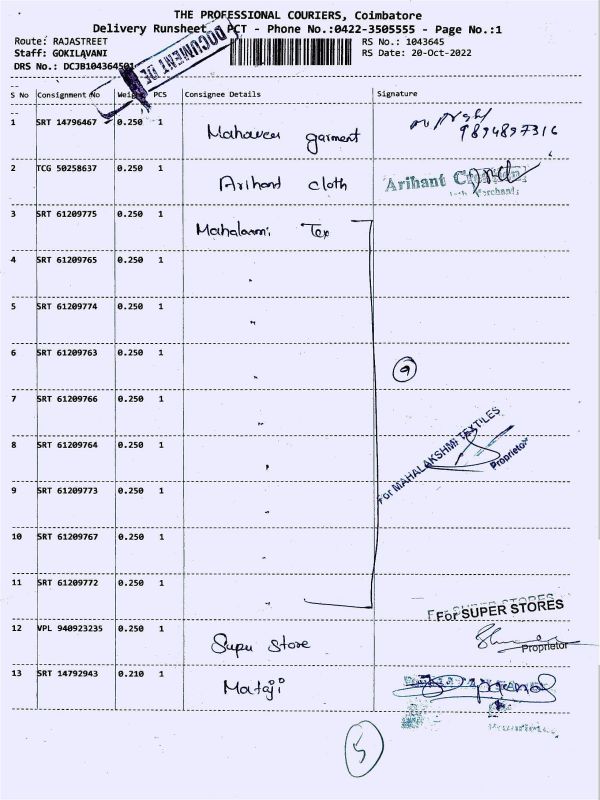 THE PROFESSIONAL COURIERS, Coimbatore
Delivery Runsheet PCT - Phone No.:0422-3505555 - Page No.:1
Route: RAJASTREET RS No.: 1043645
Staff: GOKILAVANI RS Date: 20-Oct-2022
DRS No.: DCJB104364501
DOCUMENT DE
S No Consignment No Weight PCS Consignee Details Signature
1 SRT 14796467 0.250 1 Mahaveer garment 9894897316
2 TCG 50258637 0.250 1 Arihand cloth Arihant
3 SRT 61209775 0.250 1 Mahalaxmi Tex
4 SRT 61209765 0.250 1 "
5 SRT 61209774 0.250 1 "
6 SRT 61209763 0.250 1 " 9
7 SRT 61209766 0.250 1 "
8 SRT 61209764 0.250 1 " For MAHALAKSHMI TEXTILES
Proprietor
9 SRT 61209773 0.250 1 "
10 SRT 61209767 0.250 1 "
11 SRT 61209772 0.250 1 "
For SUPER STORES
12 VPL 940923235 0.250 1 Supu Store Proprietor
13 SRT 14792943 0.210 1 Mataji
5